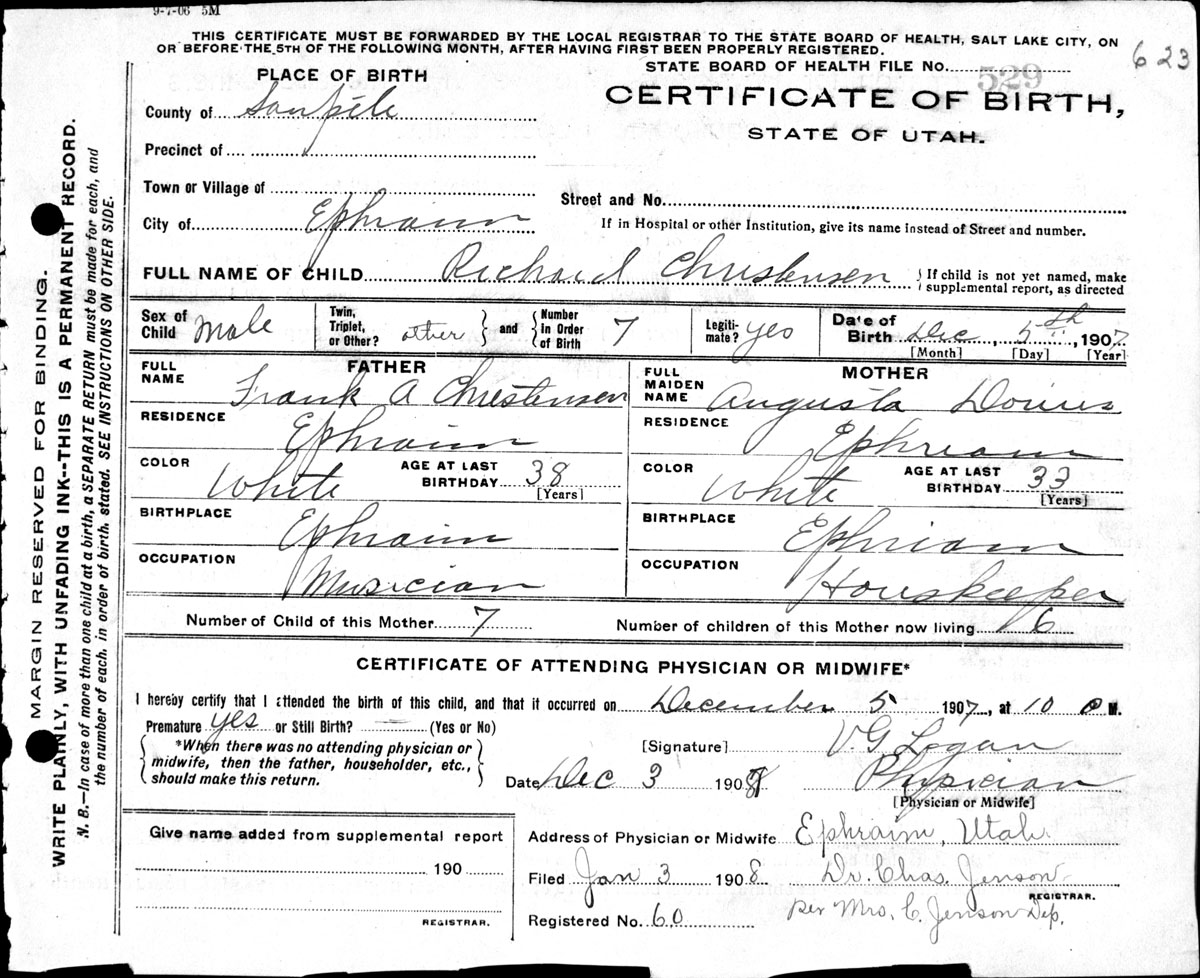 9-7-06 5M
THIS CERTIFICATE MUST BE FORWARDED BY THE LOCAL REGISTRAR TO THE STATE BOARD OF HEALTH, SALT LAKE CITY, ON
OR BEFORE THE 5TH OF THE FOLLOWING MONTH, AFTER HAVING FIRST BEEN PROPERLY REGISTERED.
STATE BOARD OF HEALTH FILE NO. 529
623
PLACE OF BIRTH
CERTIFICATE OF BIRTH,
STATE OF UTAH.
County of Sanpete
Precinct of
Town or Village of
Street and No.
City of Ephraim
If in Hospital or other Institution, give its name instead of Street and number.
FULL NAME OF CHILD Richard Christensen { If child is not yet named, make supplemental report, as directed
Sex of Child Male Twin, Triplet, or Other? other } and { Number in Order of Birth 7 Legitimate? yes Date of Birth Dec, 5th, 1907
[Month] [Day] [Year]
FATHER
FULL NAME Frank A Christensen
RESIDENCE Ephraim
COLOR White AGE AT LAST BIRTHDAY 38
[Years]
BIRTHPLACE Ephraim
OCCUPATION Musician
MOTHER
FULL MAIDEN NAME Augusta
RESIDENCE Ephriam
COLOR White AGE AT LAST BIRTHDAY 33
[Years]
BIRTHPLACE Ephriam
OCCUPATION Houskeeper
Number of Child of this Mother 7 Number of children of this Mother now living 6
CERTIFICATE OF ATTENDING PHYSICIAN OR MIDWIFE*
I hereby certify that I attended the birth of this child, and that it occurred on December 5 1907, at 10 M.
Premature yes or Still Birth? — (Yes or No)
{ *When there was no attending physician or midwife, then the father, householder, etc., should make this return. }
[Signature] V.G Logan
Date Dec 3 190 Physician
[Physician or Midwife]
Give name added from supplemental report
190
REGISTRAR.
Address of Physician or Midwife Ephraim, Utah.
Filed Jan 3 1908 Dr. Chas. Jenson
REGISTRAR.
Registered No. 60 per Mrs. C. Jenson Dep.
MARGIN RESERVED FOR BINDING.
WRITE PLAINLY, WITH UNFADING INK--THIS IS A PERMANENT RECORD.
N. B.—In case of more than one child at a birth, a SEPARATE RETURN must be made for each, and
the number of each, in order of birth, stated. SEE INSTRUCTIONS ON OTHER SIDE.